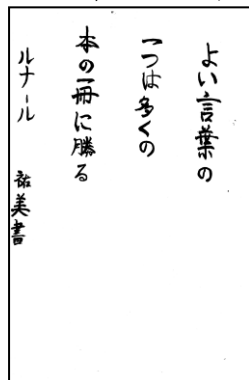 よい言葉の
一つは多くの
本の一冊に勝る
ルナール 祐美書